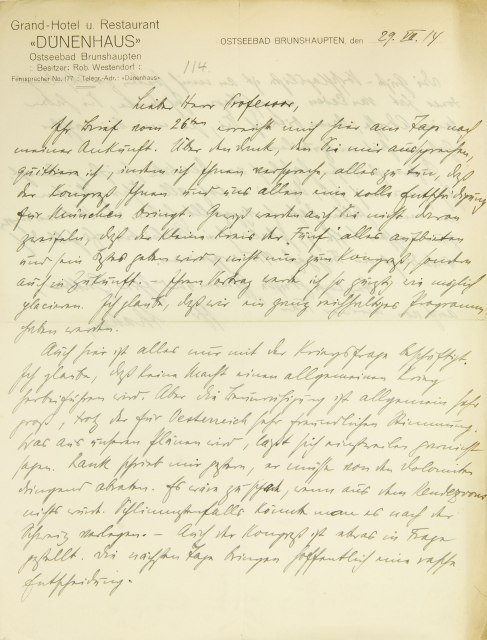 Grand-Hotel u. Restaurant
«DÜNENHAUS»
Ostseebad Brunshaupten
: Besitzer: Rob. Westendorf :
Fernsprecher No. 177 :: Telegr.-Adr.: «Dünenhaus»
OSTSEEBAD BRUNSHAUPTEN, den 29. VII. 14
114
Lieber Herr Professor,
Ihr Brief vom 26ten erreicht mich hier am Tage nach
meiner Ankunft. Über den Dank, den Sie mir aussprechen,
quittiere ich, indem ich Ihnen verspreche, alles zu tun, daß
der Kongreß Ihnen und uns allen eine volle Entschädigung
für München bringt. Gewiß werden auch Sie nicht daran
zweifeln, daß der kleine Kreis der "Fünf" alles aufbieten
und sein Bestes geben wird, nicht nur zum Kongreß, sondern
auch in Zukunft. – Ihren Vortrag werde ich so günstig wie möglich
placieren. Ich glaube, daß wir ein ganz reichhaltiges Programm
haben werden.
Auch hier ist alles nur mit der Kriegsfrage beschäftigt.
Ich glaube, daß keine Macht einen allgemeinen Krieg
herbeiführen wird. Aber die Beunruhigung ist allgemein sehr
groß, trotz der für Oesterreich sehr freundlichen Stimmung.
Was aus unseren Plänen wird, läßt sich einstweilen garnicht
sagen. Rank schrieb mir gestern, er müsse von den Dolomiten
dringend abraten. Es wäre zu schade, wenn aus dem Rendezvous
nichts würde. Schlimmstenfalls könnte man es nach der
Schweiz verlegen. – Auch der Kongreß ist etwas in Frage
gestellt. Die nächsten Tage bringen hoffentlich eine rasche
Entscheidung.